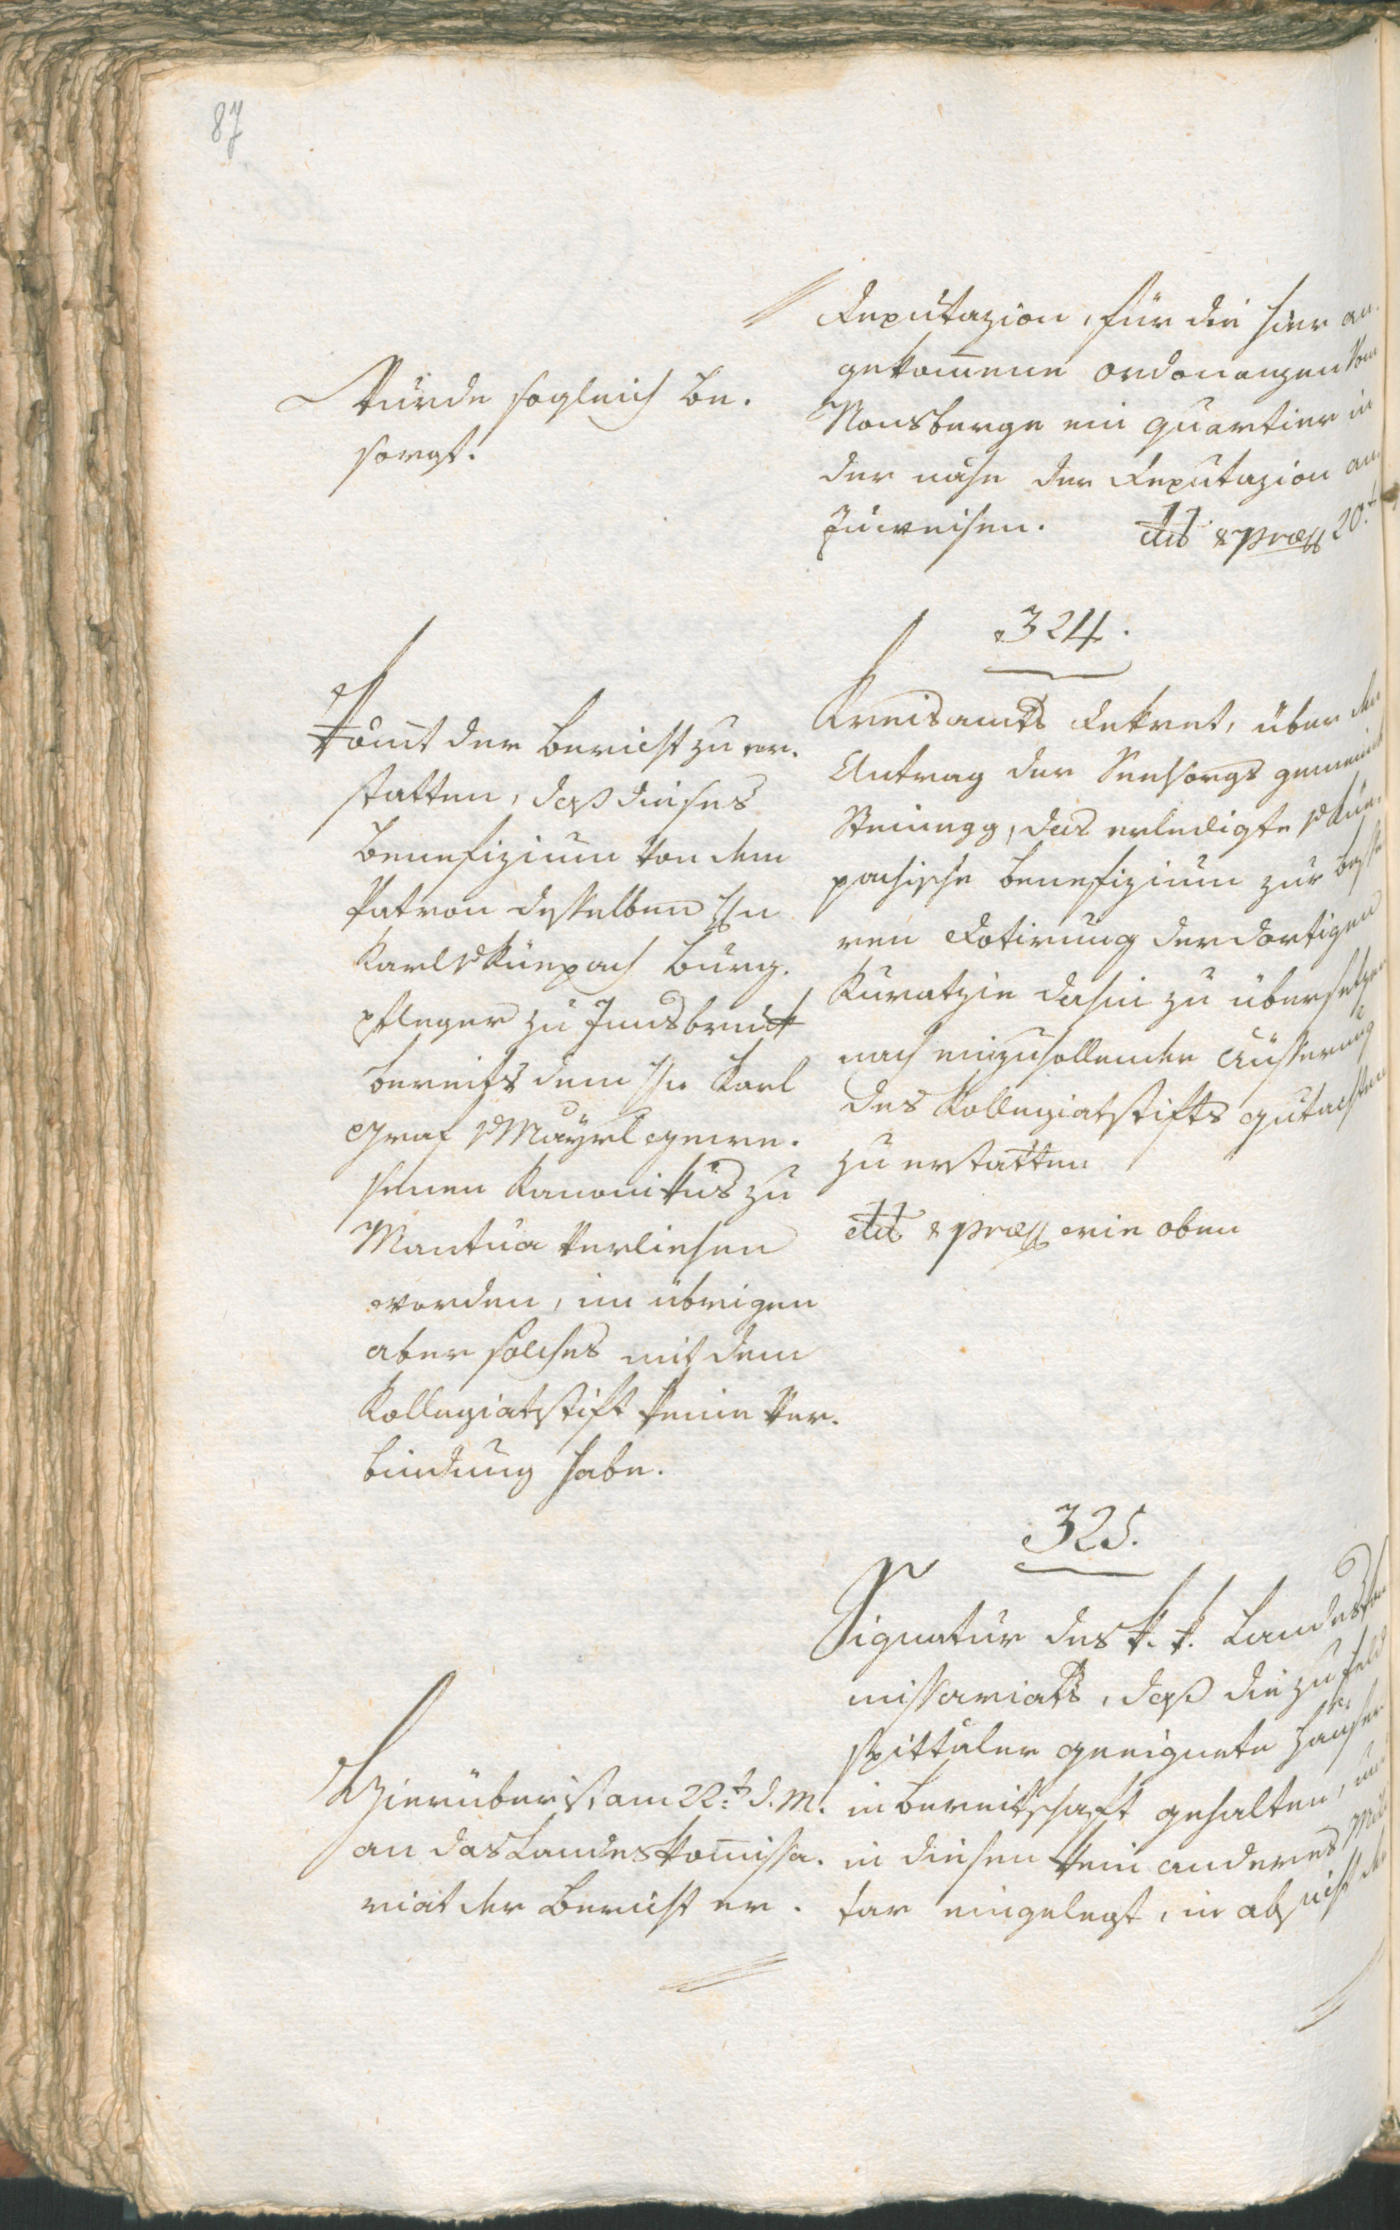 87
Deputazion, für die hier an-
gekom̅ene ordonanzen vom
Nonsberge ein quartier in
der nähe der Deputazion an-
zuweisen. dd & præss 20t
Wurde sogleich be-
sorgt.
324.
Kreisamts Dekret, über den
Antrag der Seelsorgs gemeinde
Steinegg, das erledigte v Küe-
pachische benefizium zur besse
ren Dotirung der dortigen
Kuratzie dahin zu übersetzen
nach einzuhollender Äusserung
des Kollegiatstifts gutachten
zu erstatten
dd & præss wie oben
Kom̅t der Bericht zu er-
statten, daß dieses
Benefizium von dem
Patron desselben Hn
Karl v Küepach burg-
pfleger zu Innsbruck
bereits dem Hn Karl
Graf v Mayrl gewe-
senen Kanonikus zu
Mantua verliehen
worden, im übrigen
aber solches mit dem
Kollegiatstift keine Ver-
bindung habe.
325.
Signatur des k. k. Landeskom
missariats, daß die zu Feld
spittäler geeignete Häuser
in bereitschaft gehalten, und
in diesen kein anderes Mili
tar eingelegt, in absicht der
Hierüber ist am 22t d. M.
an das Landeskom̅issa-
riat der Bericht er-